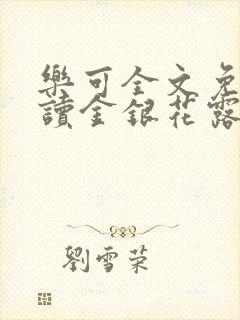 樂可全文免
讀金銀花露
劉雪荣